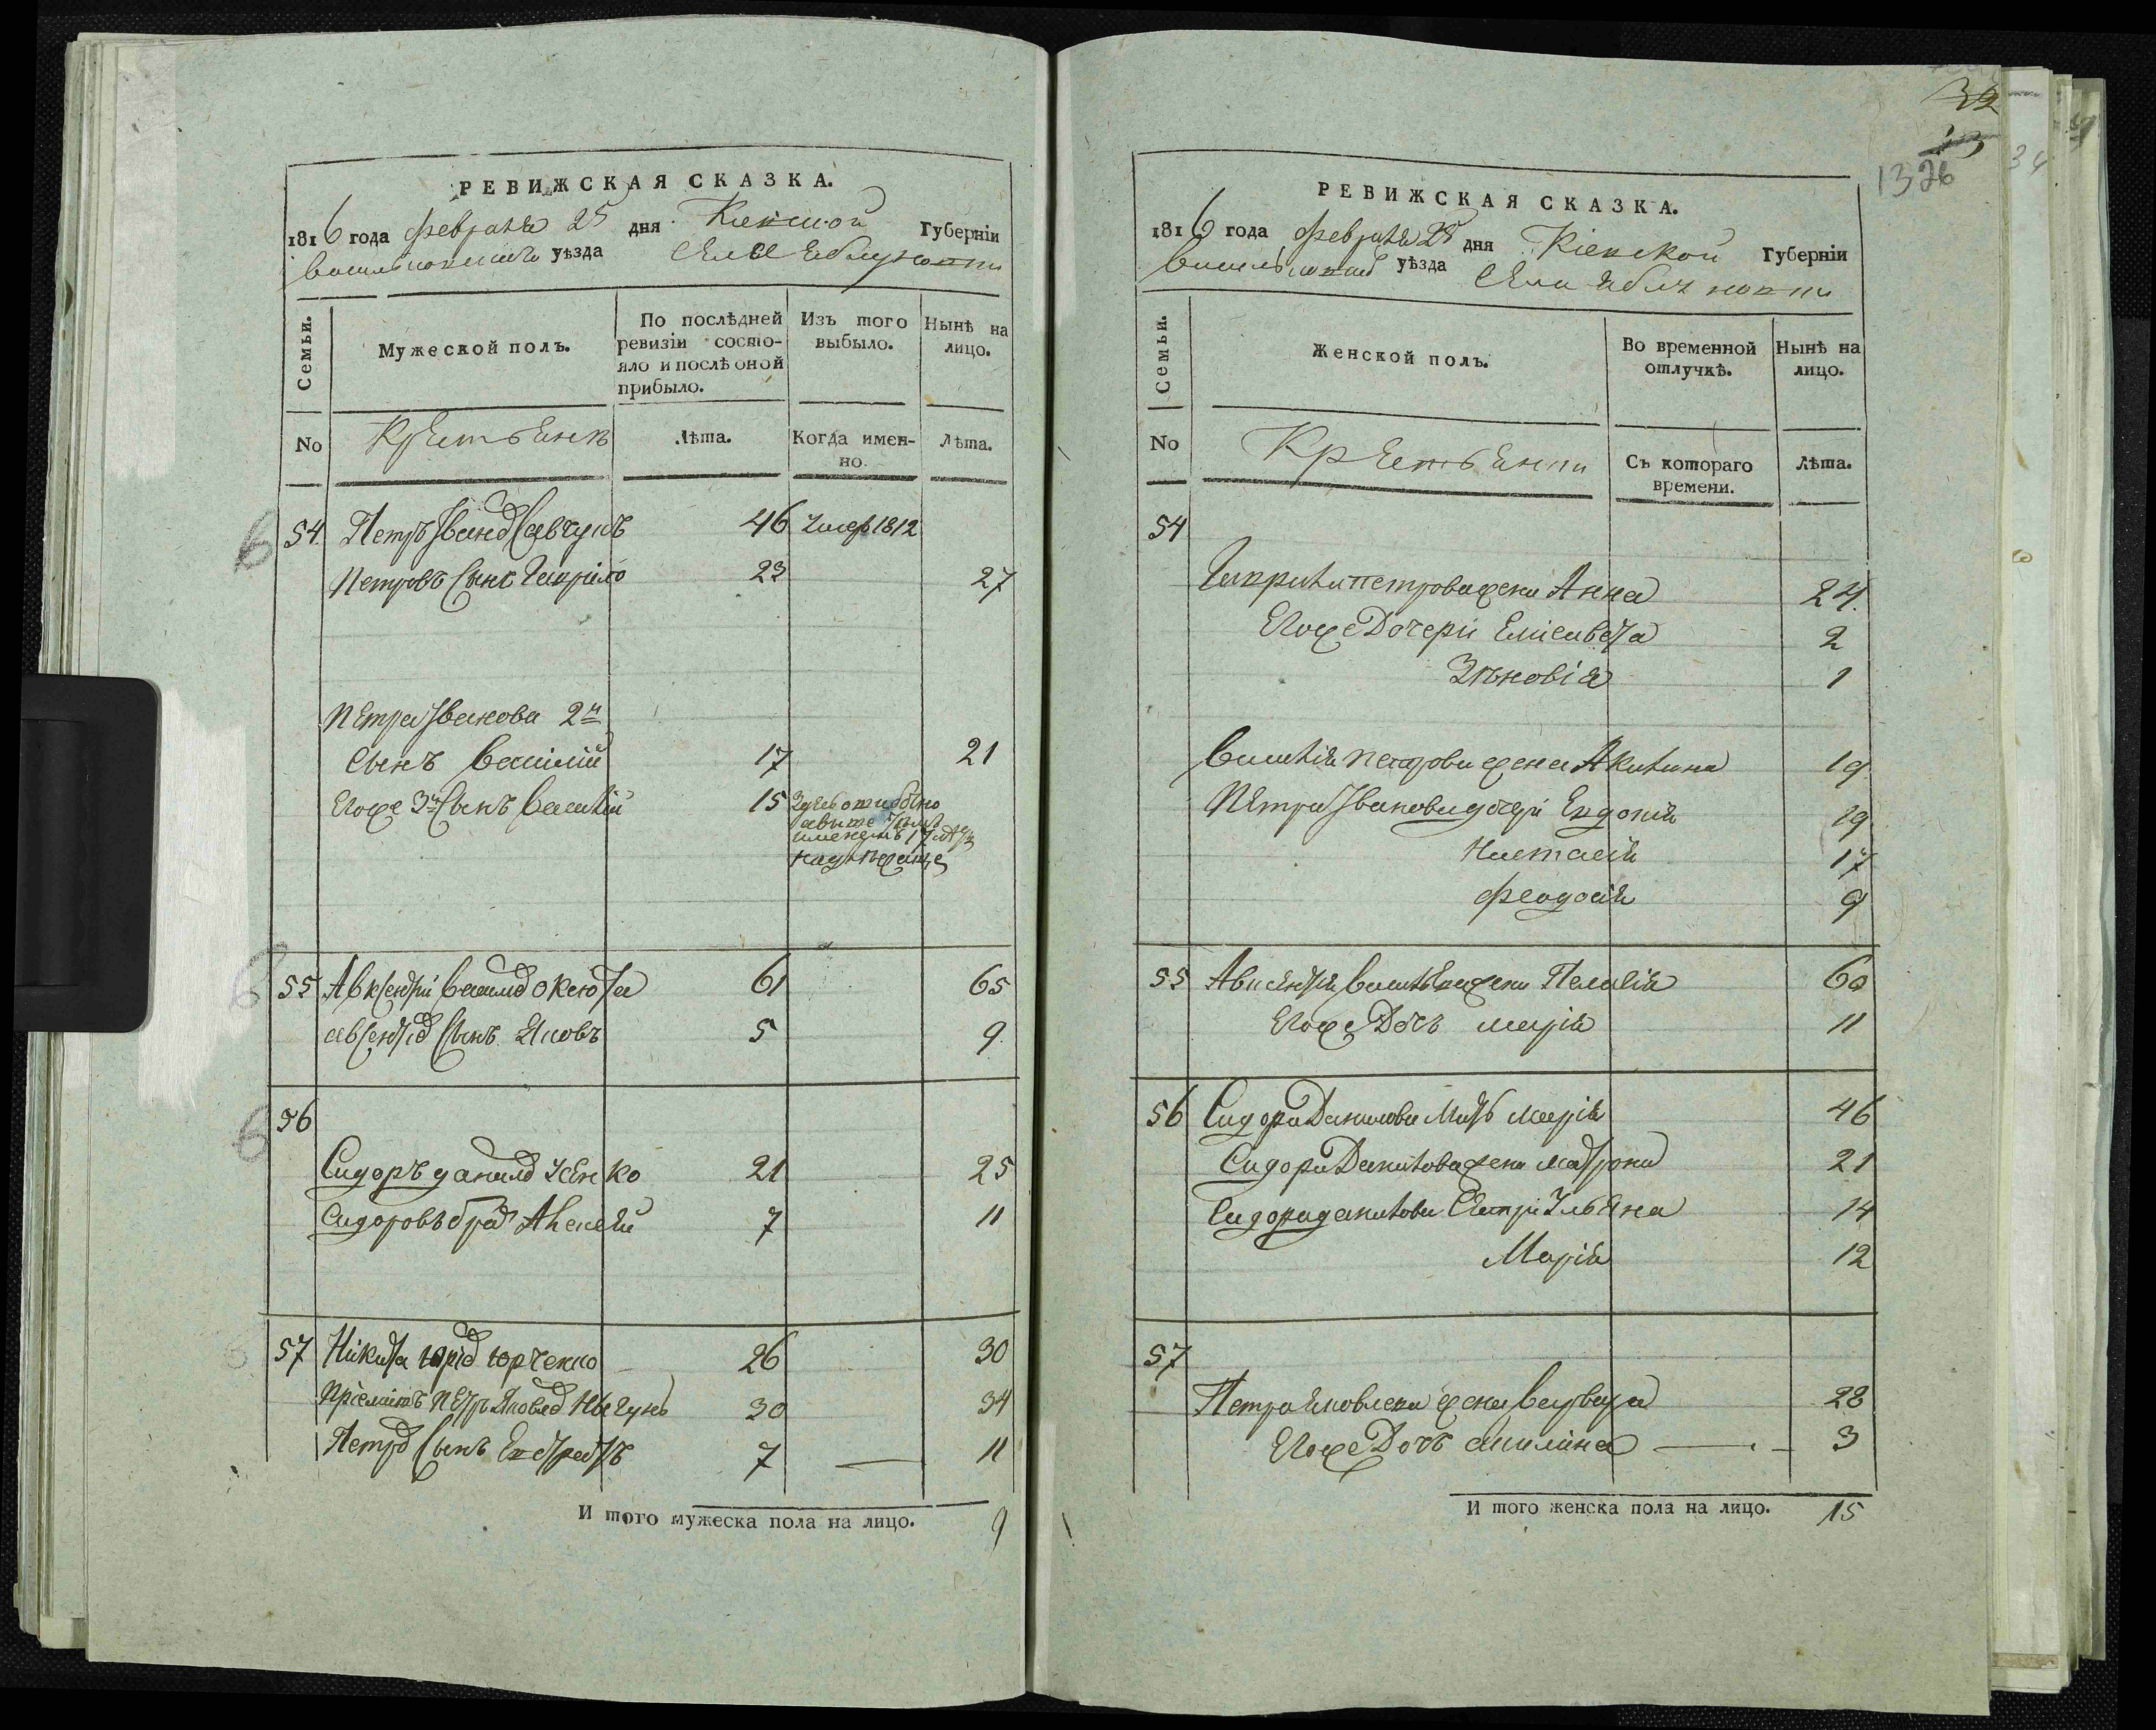 РЕВИЖСКАЯ СКАЗКА.
1816 года февраля 25 дня Киевской Губернiи
Васильковского уѣзда Села Яблуновки
Семьи.
Мужеской полъ.
По послѣдней ревизiи состо-
яло и послѣ оной
прибыло.
Изъ того
выбыло.
Нынѣ на
лицо.
No
Крестьянъ
Лѣта.
Когда имен-
но.
Лѣта.
54. Петръ Иванов Савчукъ 46 Умер 1812
Петровъ Сынъ Гаврило 23 27
Петра Иванова 2й
Сынъ Василiй 17 21
Егоже 3й Сынъ Василiй 15
55 Авксентiй Василев Оксюта 61 65
авксентiев Сынъ Яковъ 5 9
56
Сидоръ данилов 21 25
Сидоровъ брат Алексей 7 11
57 Никита юрiев юрченко 26 30
Прiемышъ Петръ Яковлев 30 34
Петров Сынъ Евстратъ 7 — 11
И того мужеска пола на лицо. 9
32
13
1326
34
РЕВИЖСКАЯ СКАЗКА.
1816 года февраля 25 дня Кiевской Губернiи
Васильковского уѣзда Села Яблуновки
Семьи.
Женской полъ.
Во временной
отлучкѣ.
Нынѣ на
лицо.
No
Крестьянки
Съ котораго
времени.
Лѣта.
54
Гаврила петрова жена Анна 24.
Егоже Дочери Елисавета 2
Зѣновiя 1
Василiя петрова жена Акилина 19
Петра Иванова дочери Евдокия 19
Настасiя 17
феодосiя 9
55 Авксентiя Васильева жена Пелагiя 60
Егоже Дочь марiя 11
56 Сидора Данилова Мать Марiя 46
Сидора Данилова жена матрона 21
Сидора данилова Сестри Ульяна 14
Марiя 12
57
Петра яковлева жена Варвара 28
Егоже Дочь акилина — 3
И того женска пола на лицо. 15